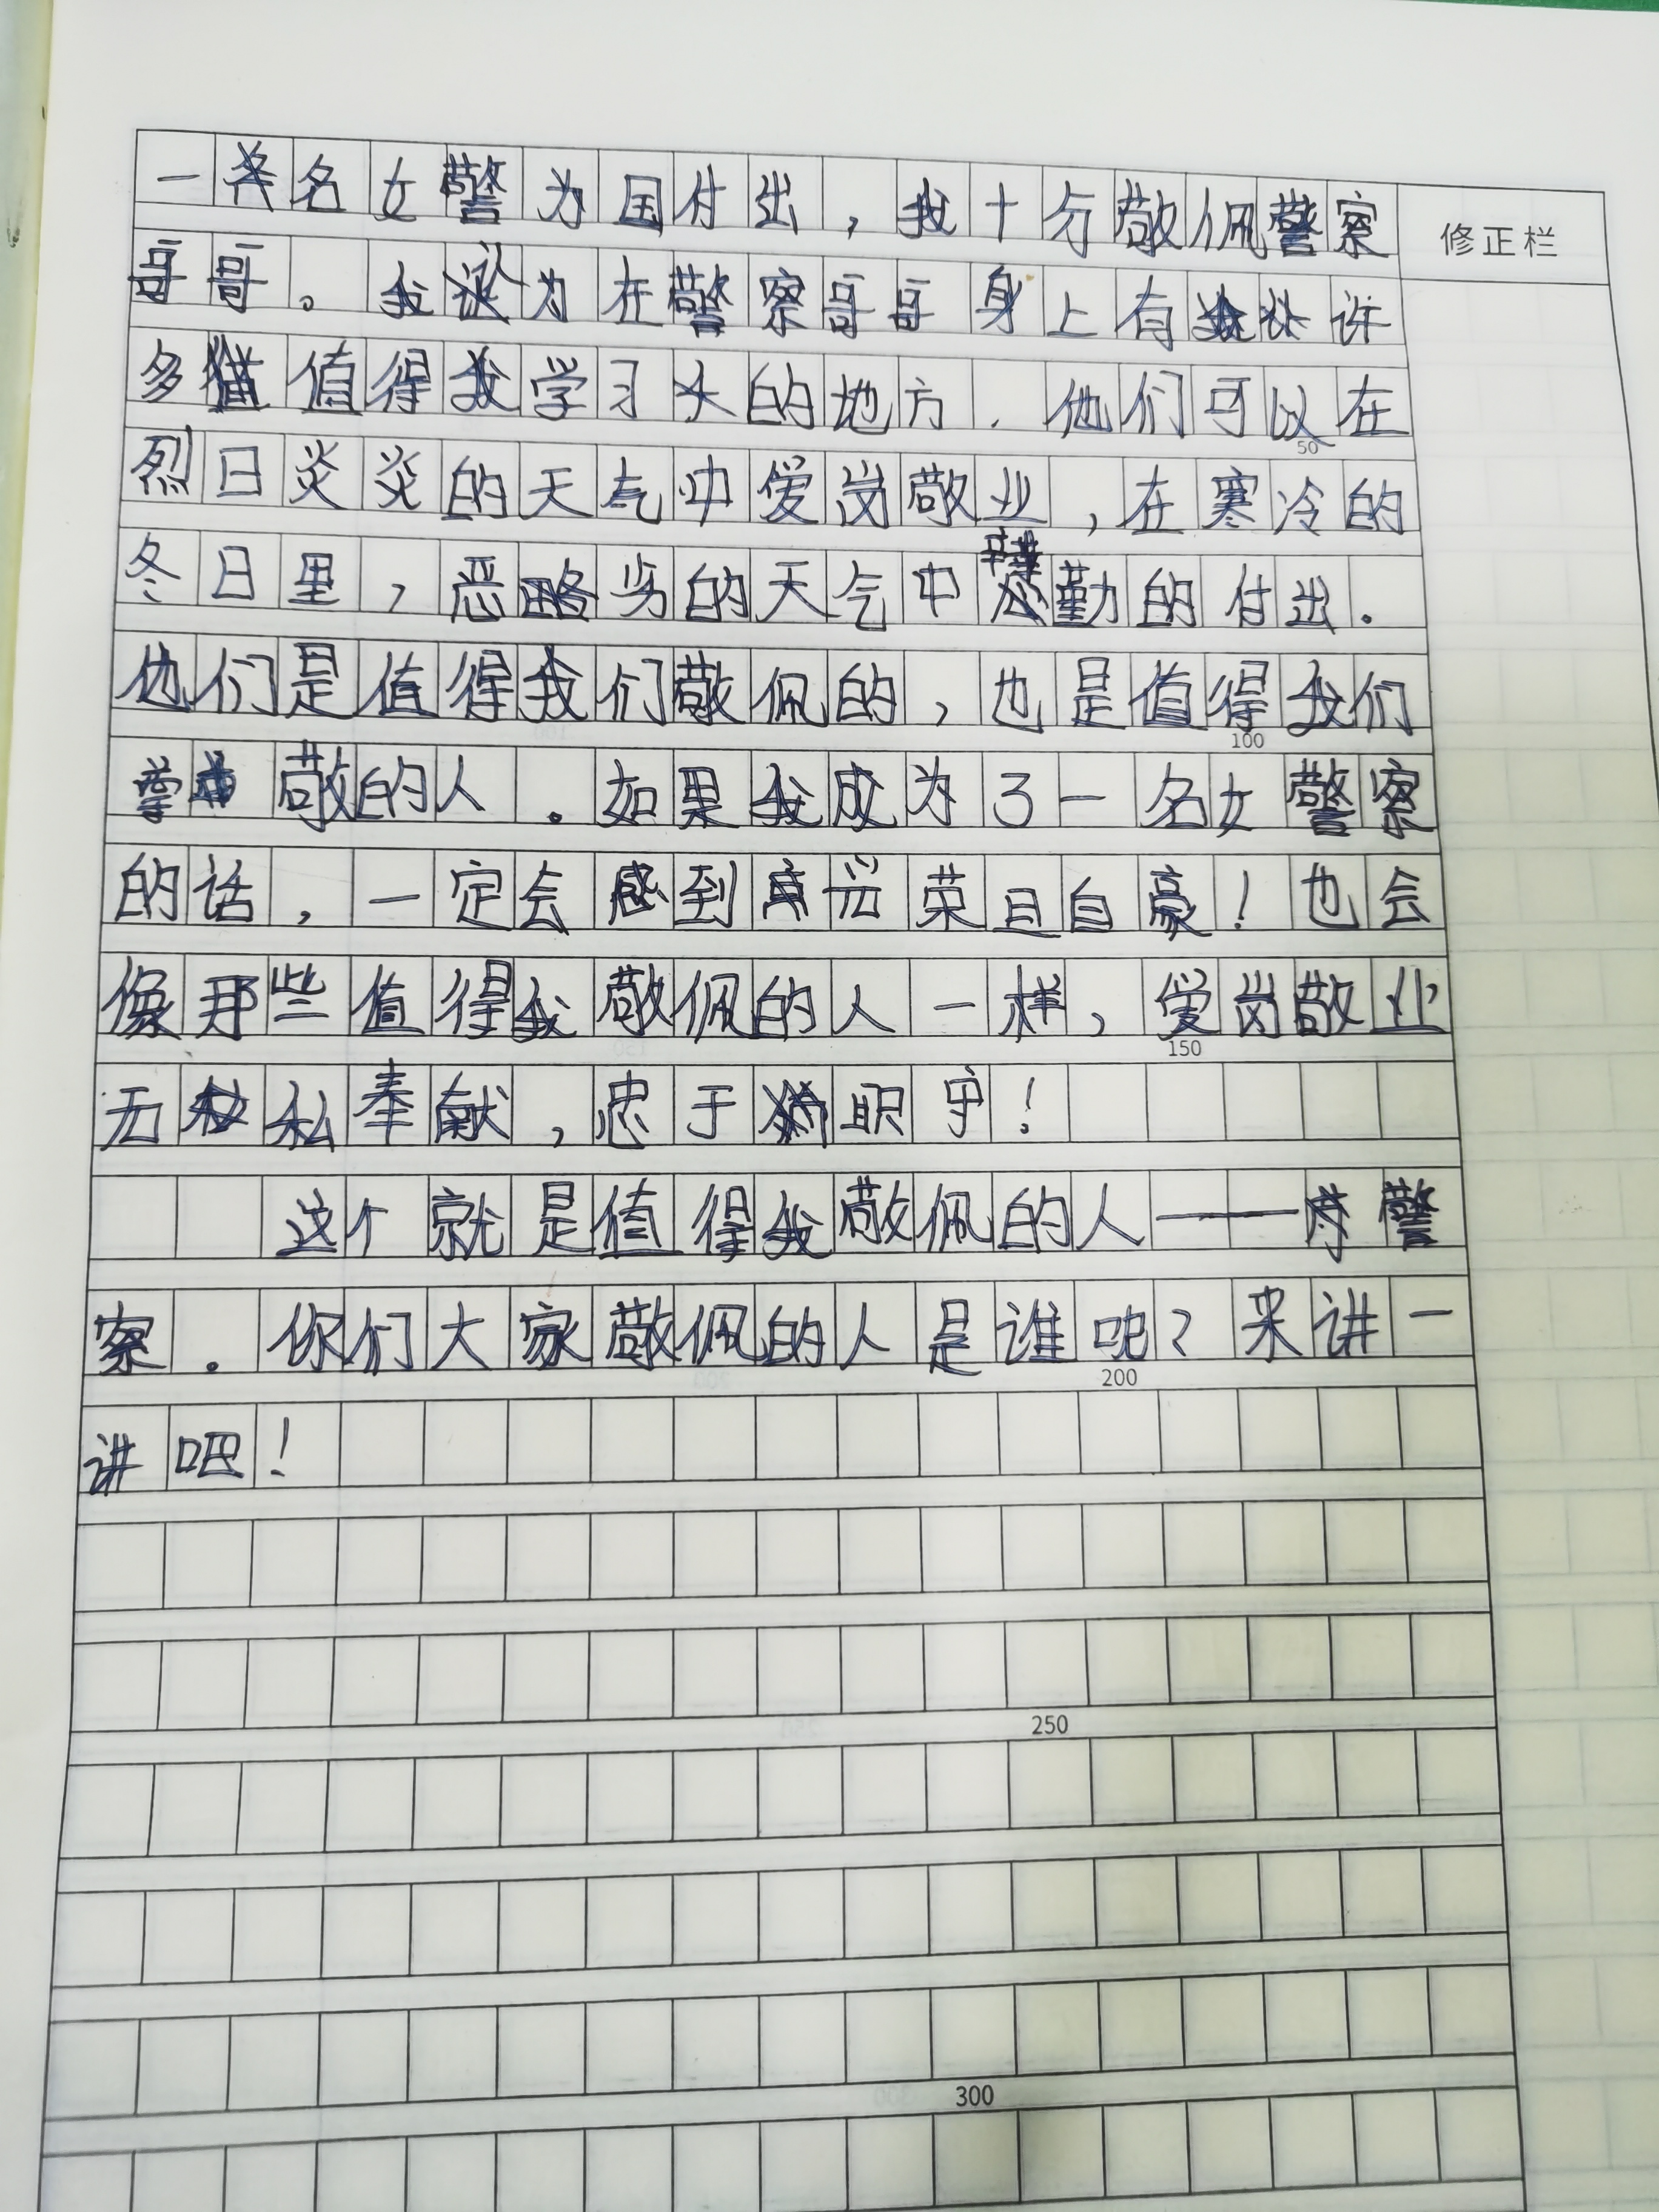 一名女警为国付出，我十分敬佩警察
修正栏
哥哥。我认为在警察哥哥身上有许
多值得我学习的地方.他们可以在
50
烈日炎炎的天气中爱岗敬业，在寒冷的
冬日里，恶劣的天气中辛勤的付出.
他们是值得我们敬佩的，也是值得我们
100
敬的人。如果我成为了一名女警察
的话，一定会感到光荣且自豪！也会
像那些值得我敬佩的人一样，爱岗敬业
150
无私奉献，忠于职守！
这个就是值得我敬佩的人——警
察。你们大家敬佩的人是谁呢？来讲一
200
讲吧！
250
300